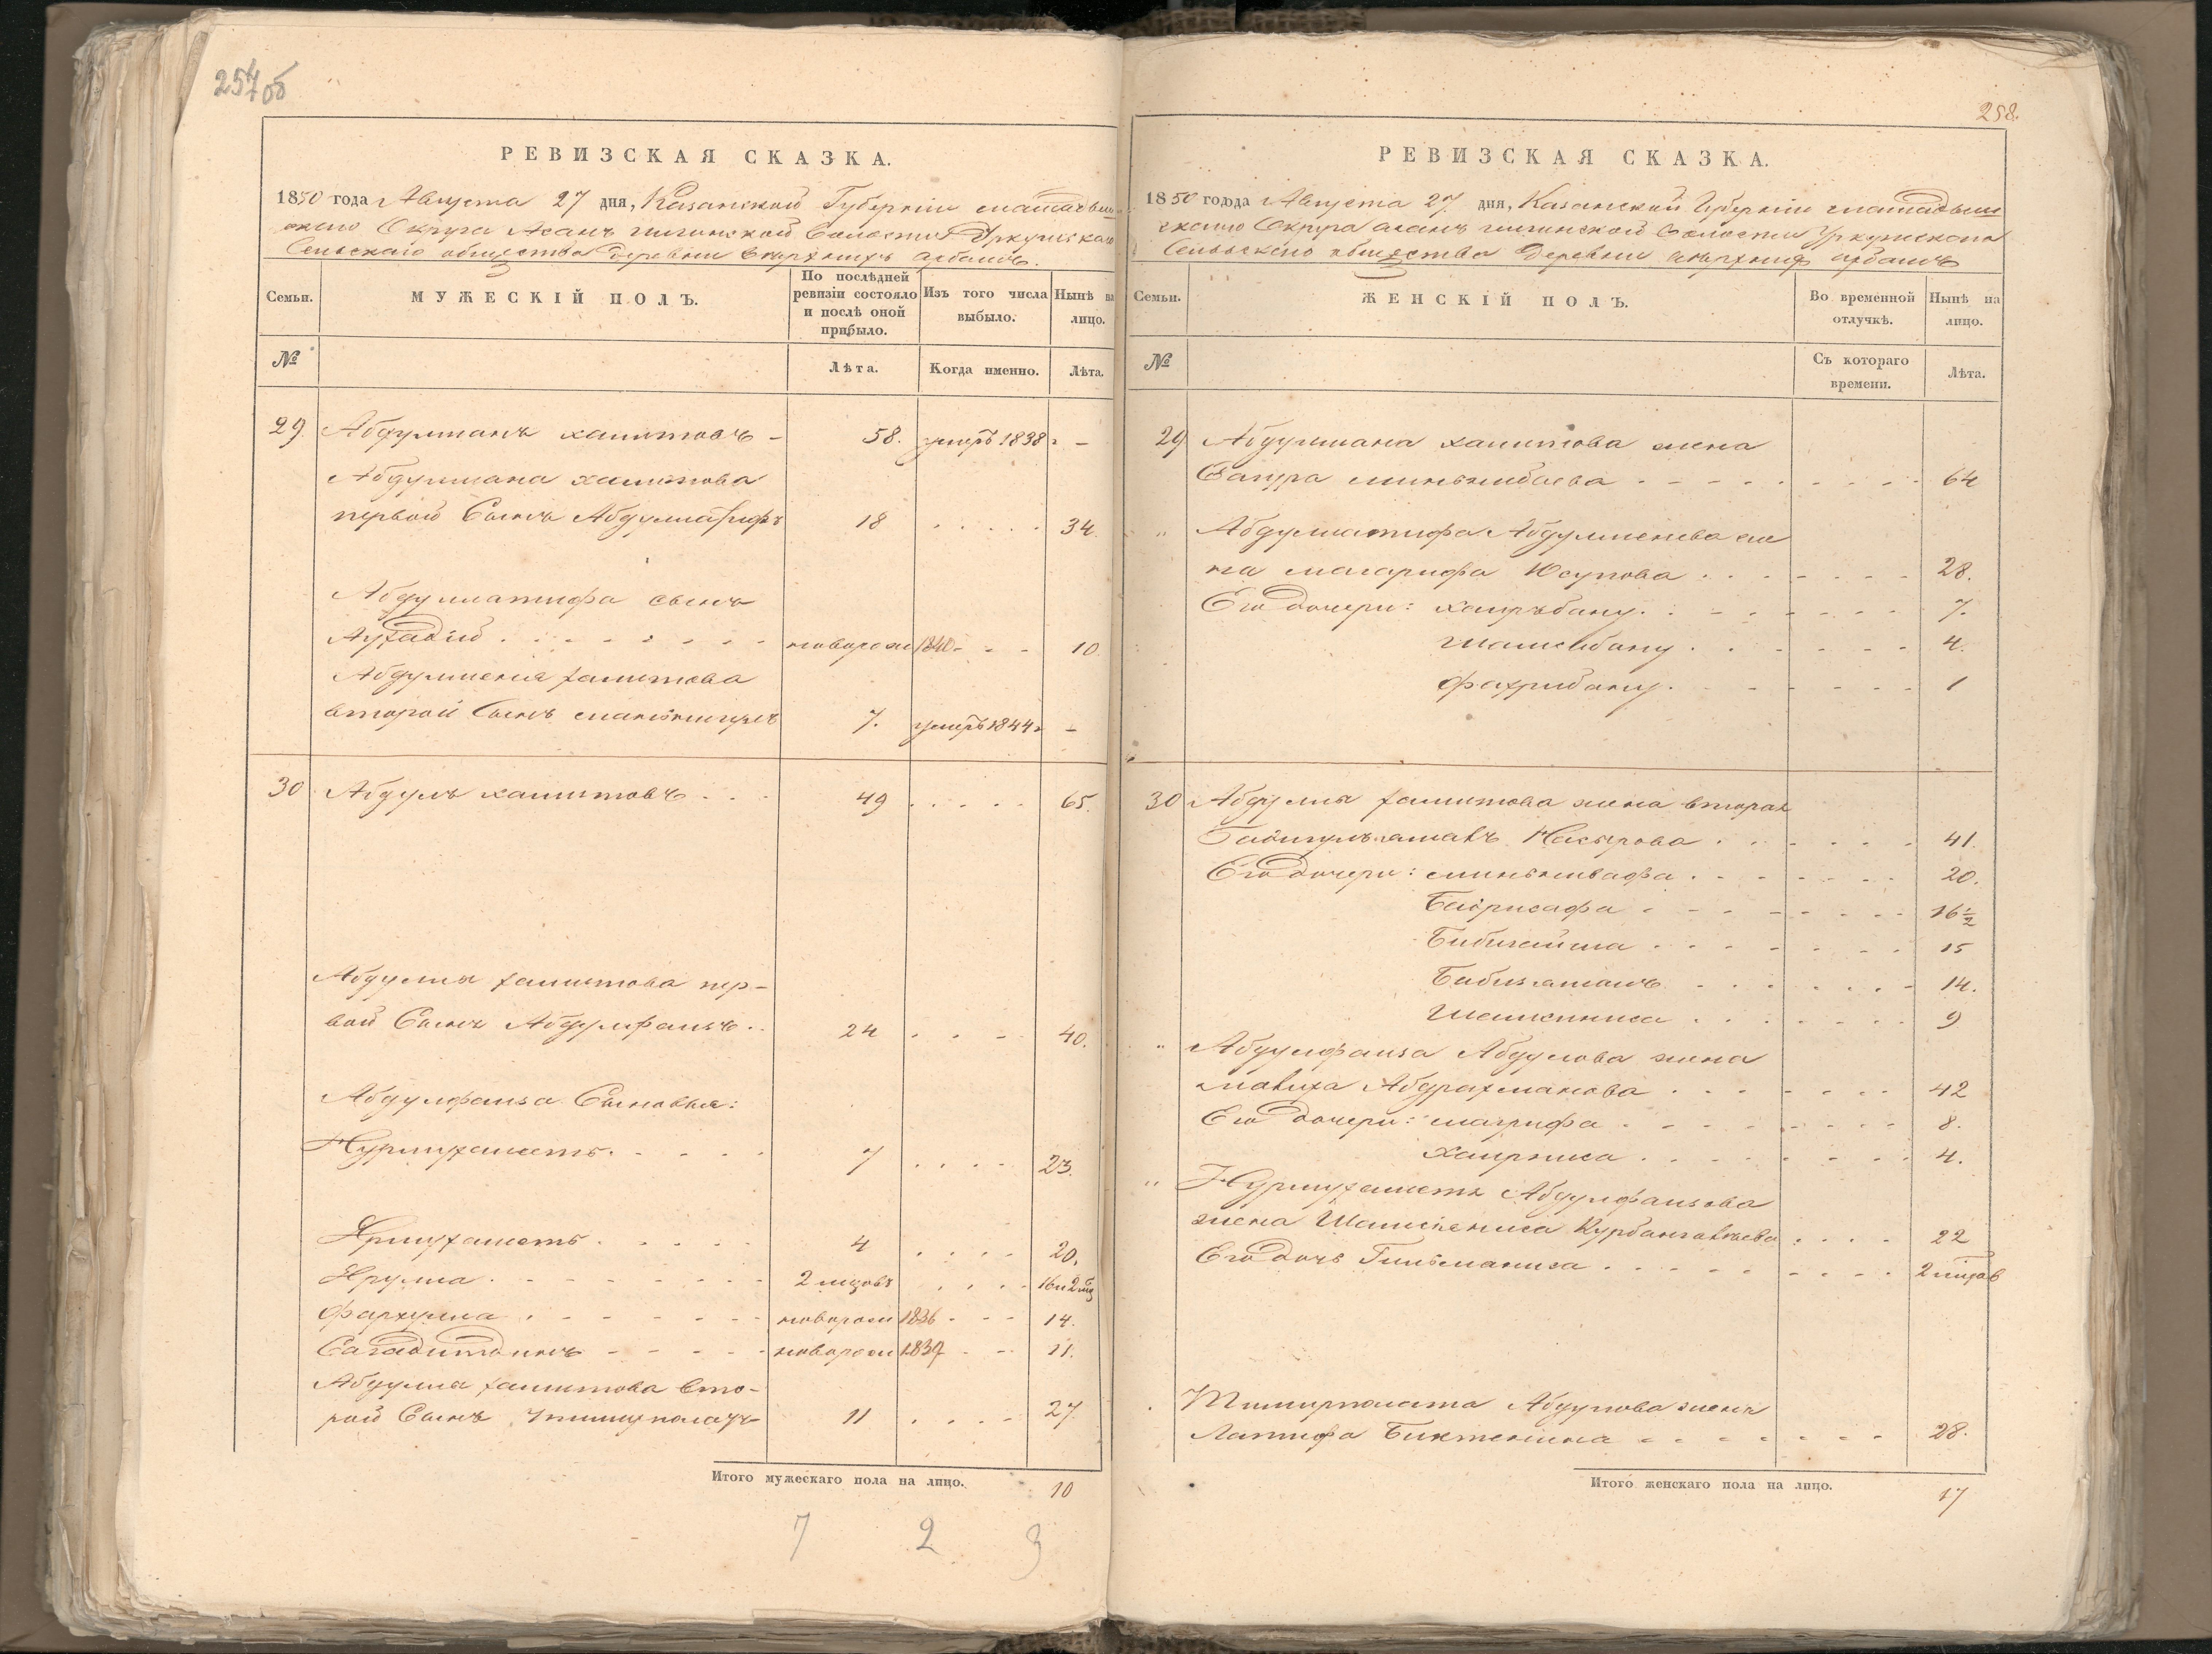 257об
РЕВИЗСКАЯ СКАЗКА.
1850 года Августа 27 дня, Казанской Губерніи мамадыш
скаго Округа Асанъ Сельскаго общества деревни
Семьи.
МУЖЕСКІЙ ПОЛЪ.
По послѣдней ревизіи состояло и послѣ оной прибыло.
Изъ того числа выбыло.
Нынѣ на лицо.
№
Лѣта.
Когда именно.
Лѣта.
29 Абдулманъ хамитовъ - 58. умеръ 1838 г -
Абдулмана хамитова
первой Сынъ Абдуллатифъ 18 34.
Абдуллатифа сынъ
новорож 1840 10
хамитова
второй Сынъ 7. умеръ 1844 г -
30 Абдулъ хамитовъ 49 65.
Абдула хамитова пер-
вой Сынъ Абдулфаизъ 24 40.
Абдулфаиза Сыновья:
Нурмухаметъ 7 23.
Ярмухаметъ 4 20.
Ярулла 2 мцовъ 16 и 2 мц
Фархулла новорож 1836 14.
Сагадитдинъ новорож 1839 11.
Абдула хамитова вто-
рой Сынъ 11 27.
Итого мужескаго пола на лицо. 10
7 2 3
258.
РЕВИЗСКАЯ СКАЗКА.
1850 года Августа 27 дня, Казанской Губерніи мамадыш
скаго Округа асанъ
Сельскаго общества деревни
Семьи.
ЖЕНСКІЙ ПОЛЪ.
Во временной отлучкѣ.
Нынѣ на лицо.
№
Съ котораго времени.
Лѣта.
29 Абдулмана хамитова жена
64
" Абдуллатифа Абдулменева же
на магарифа Юсупова 28.
Его дочери: хаирьбану 7.
Шамсибану 4.
Фахрибану 1
30 Абдула хамитова жена вторая
Насырова 41.
Его дочери: миньнивафа 20.
Бадрисафа 16 1/2
15
Бибизямалъ 14.
Шамсиниса 9
" Абдулфаиза Абдулова жена
Абдрахманова 42
Его дочери: магрифа 8.
Хаирниса 4.
" Нурмухамета Абдулфаизова
жена Шамсиниса 22
Его дочь 2 мцов
Абдулова жена
Латифа Биктемиша 28.
Итого женскаго пола на лицо. 17